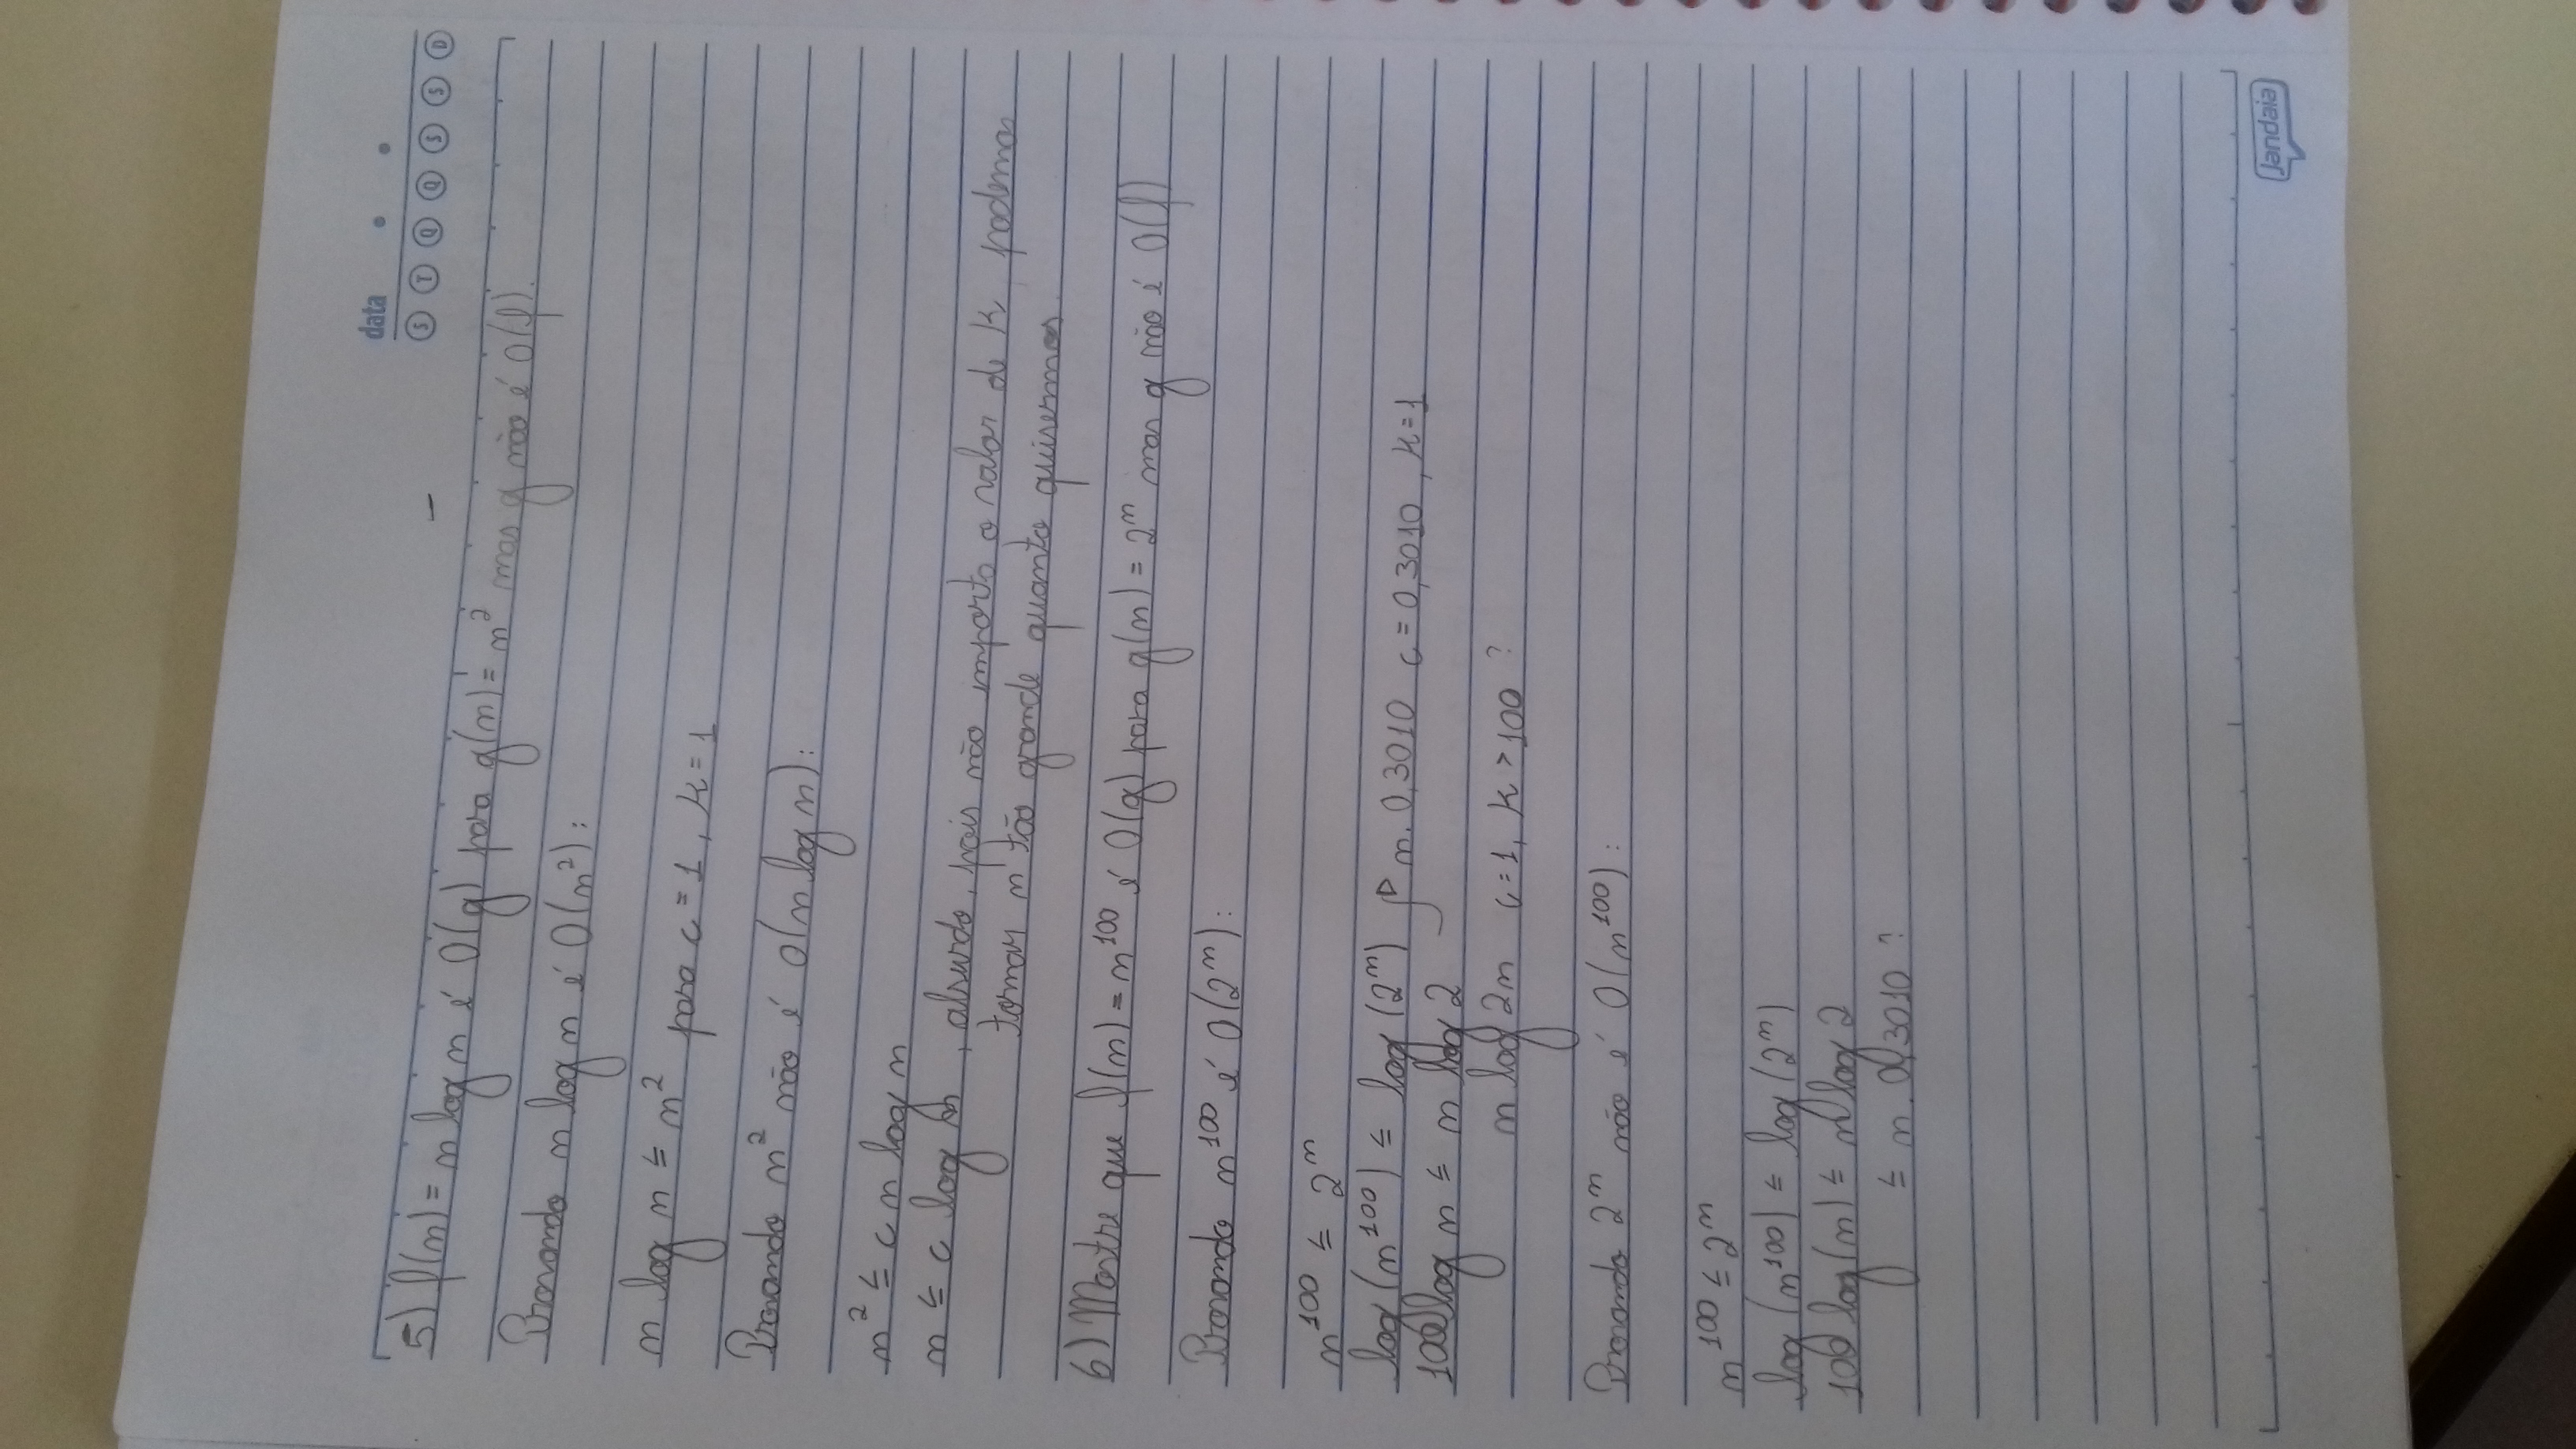 data
S T Q Q S S D
5) f(n) = n log n é O(g) para g(n) = n² mas g não é O(f).
Provando n log n é O(n²):
n log n ≤ n² para c = 1, k = 1
Provando n² não é O(n log n):
n² ≤ c n log n
n ≤ c log n, absurdo, pois não importa o valor de k podemos
tornar n tão grande quanto quisermos
6) Mostre que f(n) = n¹⁰⁰ é O(g) para g(n) = 2ⁿ mas g não é O(f)
Provando n¹⁰⁰ é O(2ⁿ):
n¹⁰⁰ ≤ 2ⁿ
log (n¹⁰⁰) ≤ log (2ⁿ) n. 0,3010 c = 0,3010, k = 1
100 log n ≤ n log 2
n log 2n c = 1, k > 100 ?
Provando 2ⁿ não é O(n¹⁰⁰):
n¹⁰⁰ ≤ 2ⁿ
log (n¹⁰⁰) ≤ log (2ⁿ)
100 log(n) ≤ n log 2
≤ n. 0,3010 ?
Jandaia